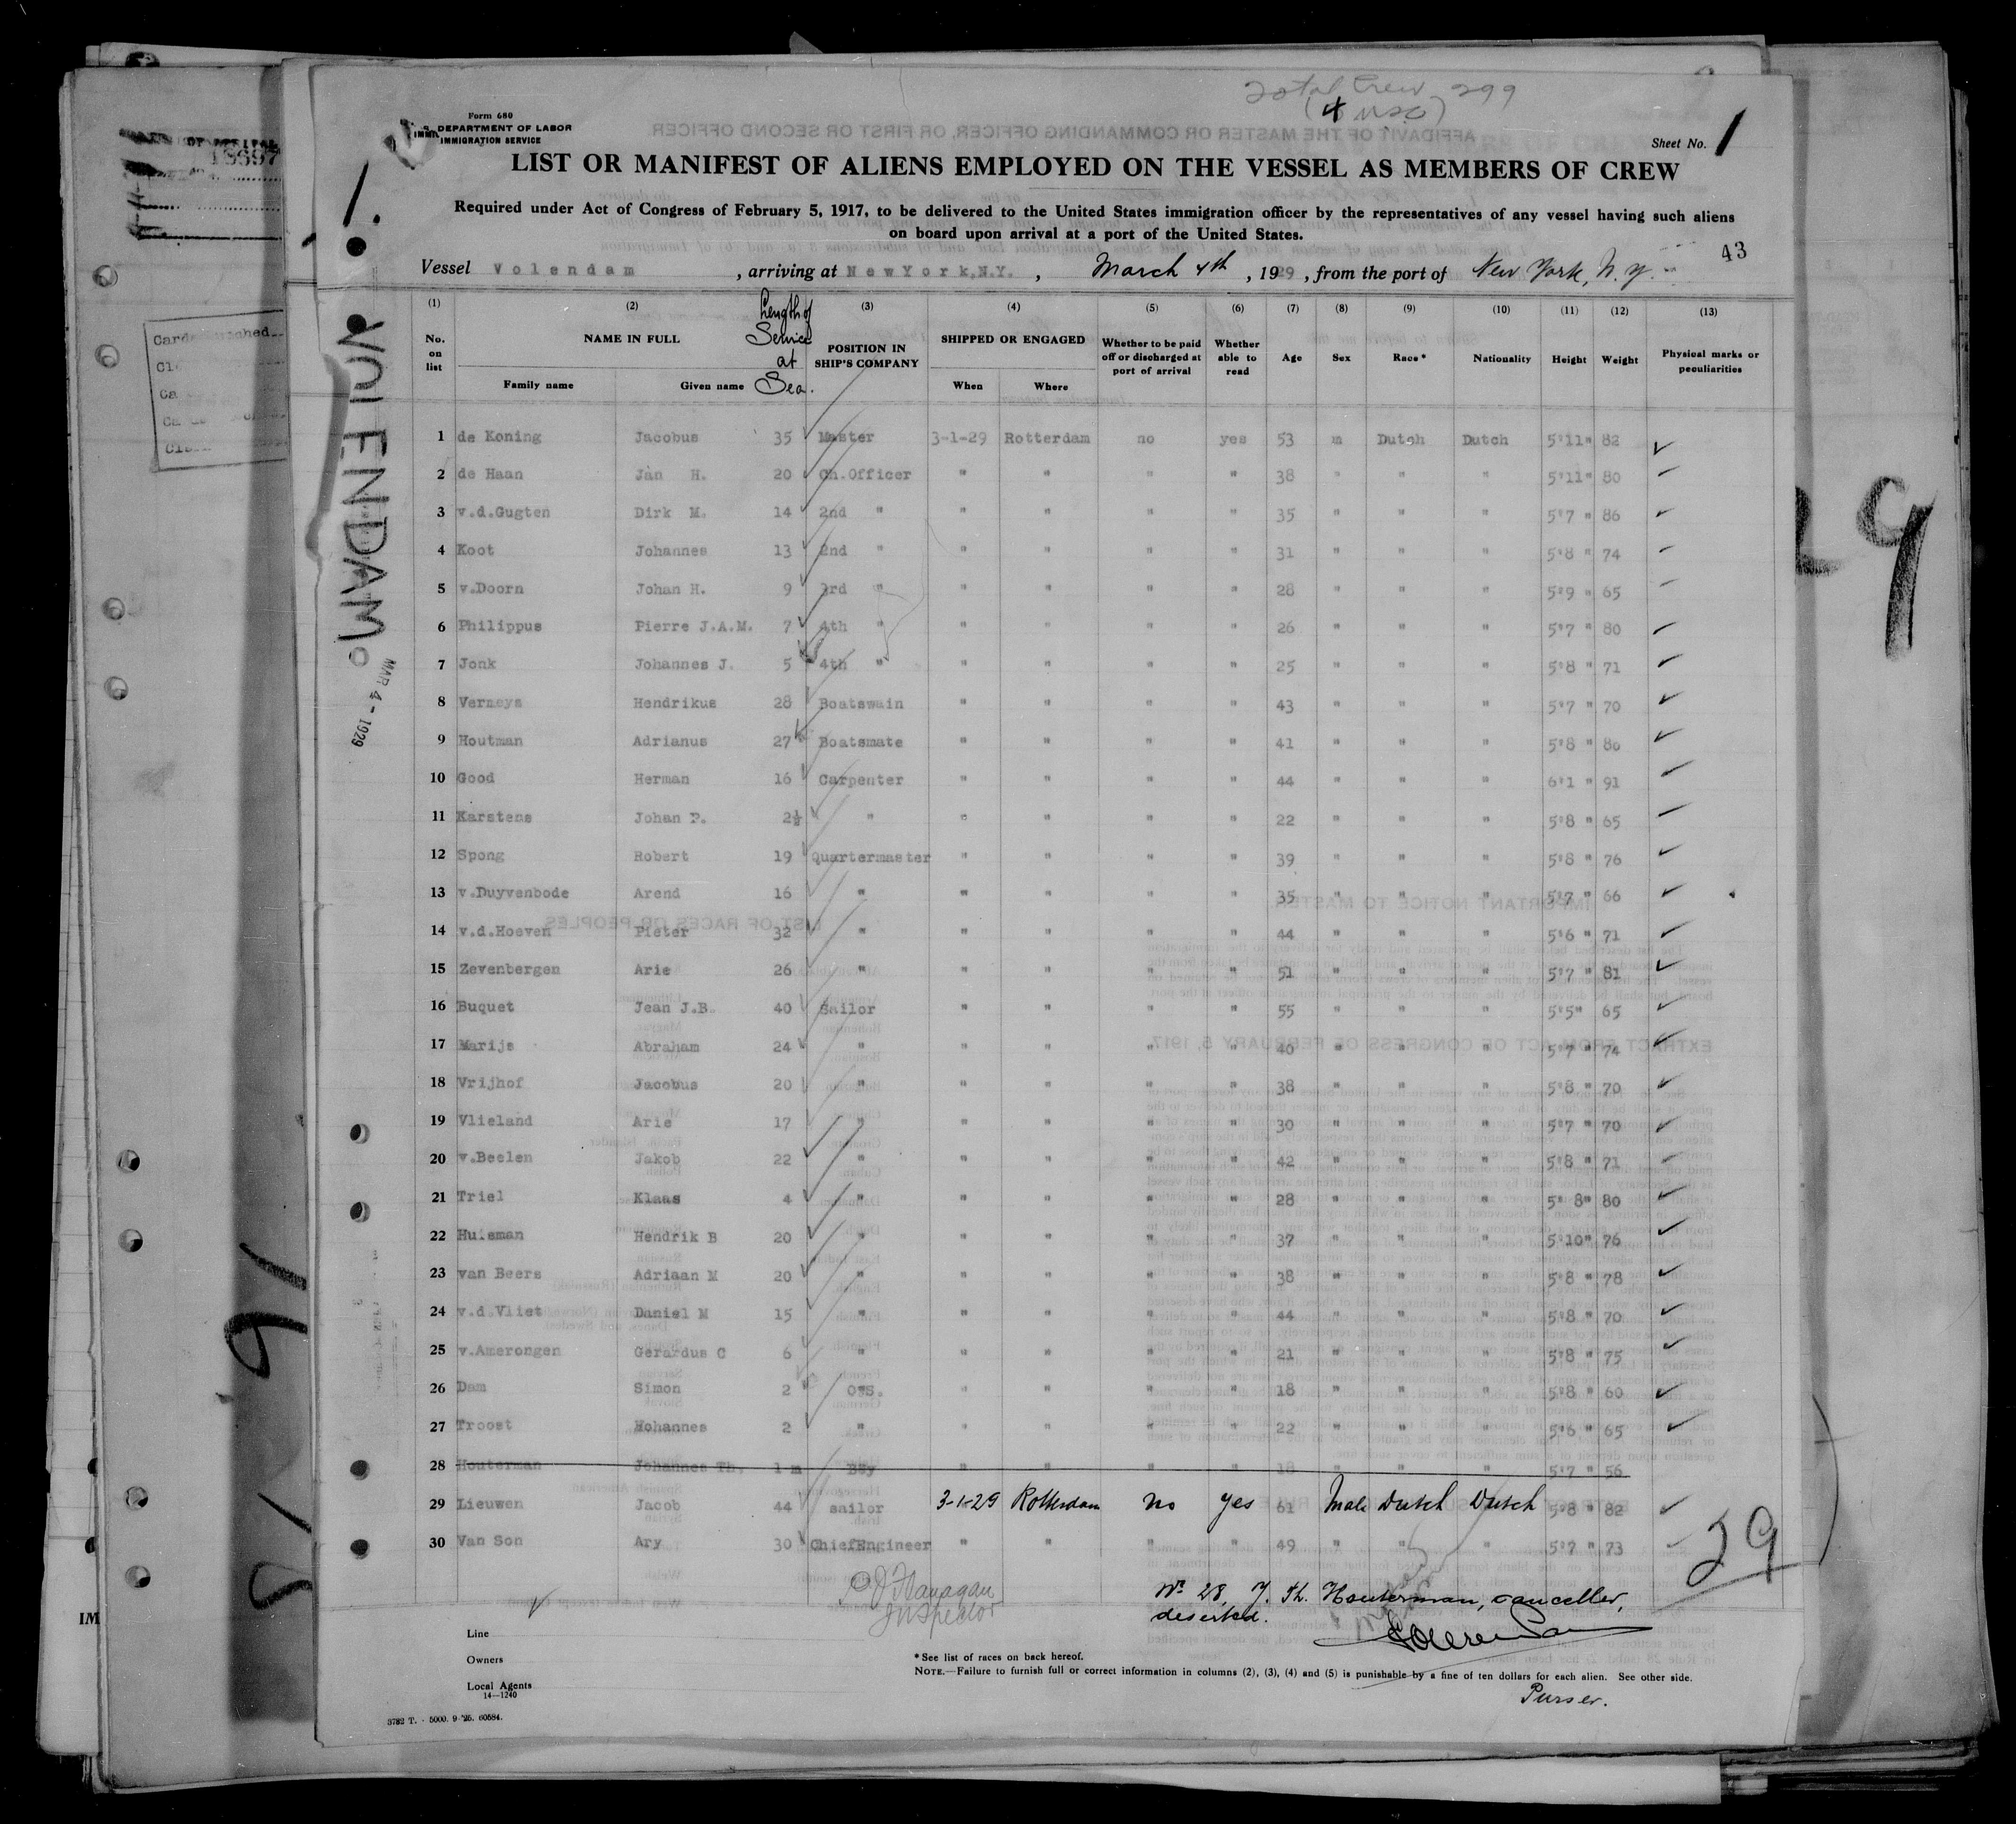 Total Crew 299
(4 USC)
Form 680
U. S. DEPARTMENT OF LABOR
IMMIGRATION SERVICE
Sheet No. 1
LIST OR MANIFEST OF ALIENS EMPLOYED ON THE VESSEL AS MEMBERS OF CREW
Required under Act of Congress of February 5, 1917, to be delivered to the United States immigration officer by the representatives of any vessel having such aliens
on board upon arrival at a port of the United States.
43
Vessel Volendam, arriving at New York, N.Y., March 4th, 1929, from the port of New York, N.Y.
(1) (2) (3) (4) (5) (6) (7) (8) (9) (10) (11) (12) (13)
No. on list NAME IN FULL Length of Service at Sea. POSITION IN SHIP'S COMPANY SHIPPED OR ENGAGED Whether to be paid off or discharged at port of arrival Whether able to read Age Sex Race* Nationality Height Weight Physical marks or peculiarities
Family name Given name When Where
1 de Koning Jacobus 35 Master 3-1-29 Rotterdam no yes 53 m Dutch Dutch 5'11" 82
2 de Haan Jan H. 20 Ch.Officer " " " " 38 " " " 5'11" 80
3 v.d.Gugten Dirk M. 14 2nd " " " " " 35 " " " 5'7 " 86
4 Koot Johannes 13 2nd " " " " " 31 " " " 5'8 " 74
5 v.Doorn Johan H. 9 3rd " " " " " 28 " " " 5'9 " 65
6 Philippus Pierre J.A.M. 7 4th " " " " " 26 " " " 5'7 " 80
7 Jonk Johannes J. 5 4th " " " " " 25 " " " 5'8 " 71
8 Vermeys Hendrikus 28 Boatswain " " " " 43 " " " 5'7 " 70
9 Houtman Adrianus 27 Boatsmate " " " " 41 " " " 5'8 " 80
10 Good Herman 16 Carpenter " " " " 44 " " " 6'1 " 91
11 Karstens Johan P. 2½ " " " " " 22 " " " 5'8 " 65
12 Spong Robert 19 Quartermaster " " " " 39 " " " 5'8 " 76
13 v.Duyvenbode Arend 16 " " " " " 35 " " " 5'7 " 66
14 v.d.Hoeven Pieter 32 " " " " " 44 " " " 5'6 " 71
15 Zevenbergen Arie 26 " " " " " 51 " " " 5'7 " 81
16 Buquet Jean J.B. 40 Sailor " " " " 55 " " " 5'5" 65
17 Marijs Abraham 24 " " " " " 40 " " " 5'7 " 74
18 Vrijhof Jacobus 20 " " " " " 38 " " " 5'8 " 70
19 Vlieland Arie 17 " " " " " 30 " " " 5'7 " 70
20 v.Beelen Jakob 22 " " " " " 42 " " " 5'8 " 71
21 Triel Klaas 4 " " " " " 28 " " " 5' 8" 80
22 Huisman Hendrik B 20 " " " " " 37 " " " 5'10" 76
23 van Beers Adriaan M 20 " " " " " 38 " " " 5'8 " 78
24 v.d.Vliet Daniel M 15 " " " " " 44 " " " 5'8 " 70
25 v.Amerongen Gerardus C 6 " " " " " 21 " " " 5'8 " 75
26 Dam Simon 2 O.S. " " " " 18 " " " 5'8 " 60
27 Troost Hohannes 2 " " " " " 22 " " " 5'6 " 65
28 Houterman Johannes Th. 1 m Boy " " " " 18 " " " 5'7 " 56
29 Lieuwen Jacob 44 sailor 3-1-29 Rotterdam no yes 61 Male Dutch Dutch 5'8 " 82
30 Van Son Ary 30 ChiefEngineer " " " " 49 " " " 5'7 " 73
29
P J Flanagan
Inspector
No 28, J. Th. Houterman, canceller,
deserted.
Line
Owners
Local Agents
14—1240
* See list of races on back hereof.
NOTE.—Failure to furnish full or correct information in columns (2), (3), (4) and (5) is punishable by a fine of ten dollars for each alien. See other side.
Purser.
3782 T. - 5000. 9-'25. 60584.
1.
VOLENDAM.
MAR 4 - 1929